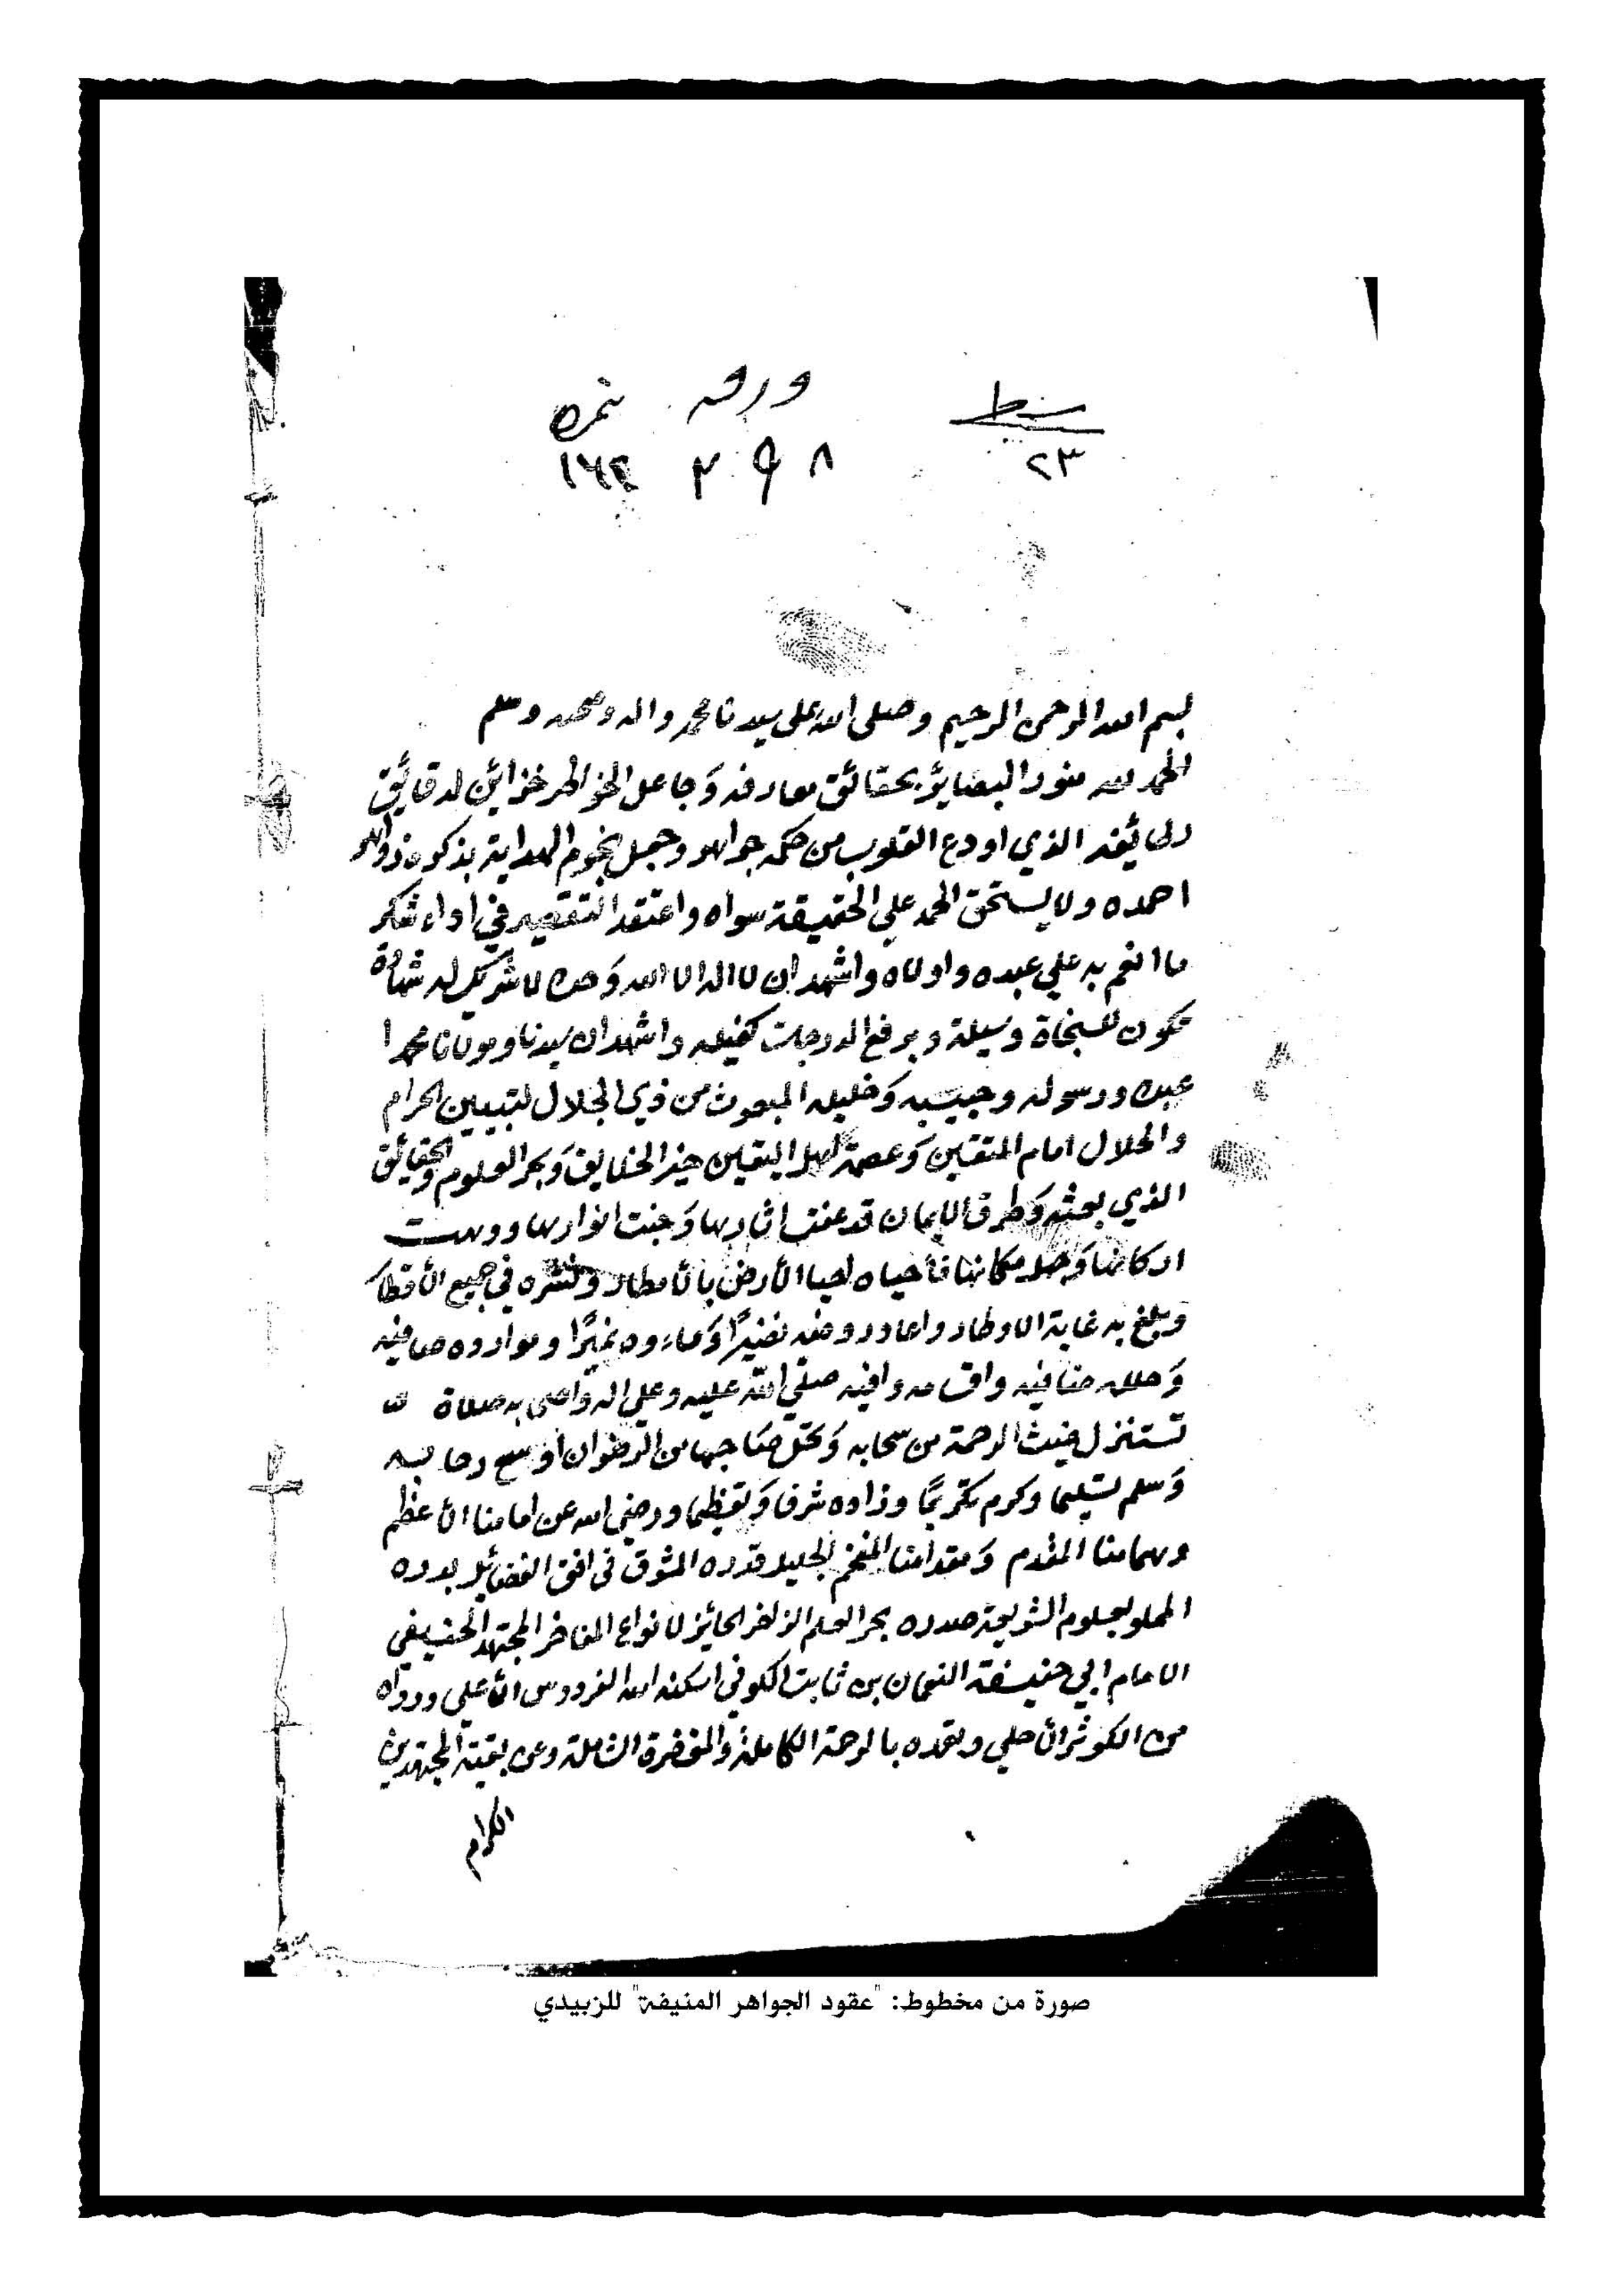 سطر ورقه نمره
٢٣ ٨ و ٢ ١٦٢
بسم الله الرحمن الرحيم وصلى الله على سيدنا محمد واله وصحبه وسلم
الحمد لله منور البصاير بحقائق معارفه وَجاعل الخواطر خزائن لدقايق
لطائفه الذي اودع القلوب من حكمه جواهر وجعل نجوم الهداية بذكره زواهر
احمده ولا يستحق الحمد علي الحقيقة سواه واعتقد التقصير في اداء شكر
ما انعم به علي عبده واولاه واشهد ان لا اله الا الله وَحده لا شريك له شهادة
تكون للنجاة وسيلة وبرفع الدرجات كفيله واشهد ان سيدنا ومولانا محمدا
عبده ورسوله وحبيبه وَخليله المبعوث من ذي الجلال لتبيين الحرام
والحلال امام المتقين وَعصمة اهل اليقين خير الخلايق وَبحر العلوم والحقائق
الذي بعثه وَطرق الايمان قد عفت اثارها وَخبت انوارها ووهت
اركانها وَجهل مكانها فأحياه احيا الأرض بالأمطار ونشره في جميع الأقطار
وبلغ به غاية الاوطار واعاد روضه نضيرًا وَماءه نميرًا وموارده صافيه
وَحلله ضافيه واقسامه وافيه صلّي الله عليه وعلي اله واصحابه صلاة
تستنزل غيث الرحمة من سحابه وَتحل صاحبها من الرضوان أوسع رحابه
وَسلم تسليما وكرم تكريمًا وزاده شرفا وَتعظيما ورضي الله عن امامنا الأعظم
وهمامنا المقدم وَمقدامنا المفخم الجليل قدره المشرق في افق الفضائل بدره
المملو بعلوم الشريعة صدره بحر العلم الزاخر الحائز لانواع المفاخر المجتهد الحنيفي
الامام ابي حنيفة النعمان بن ثابت الكوفي اسكنه الله الفردوس الأعلي ورواه
من الكوثر الأحلي وتغمده بالرحمة الكاملة والمغفرة الشاملة وعن بقية المجتهدين
الكرام
صورة من مخطوط: "عقود الجواهر المنيفة" للزبيدي